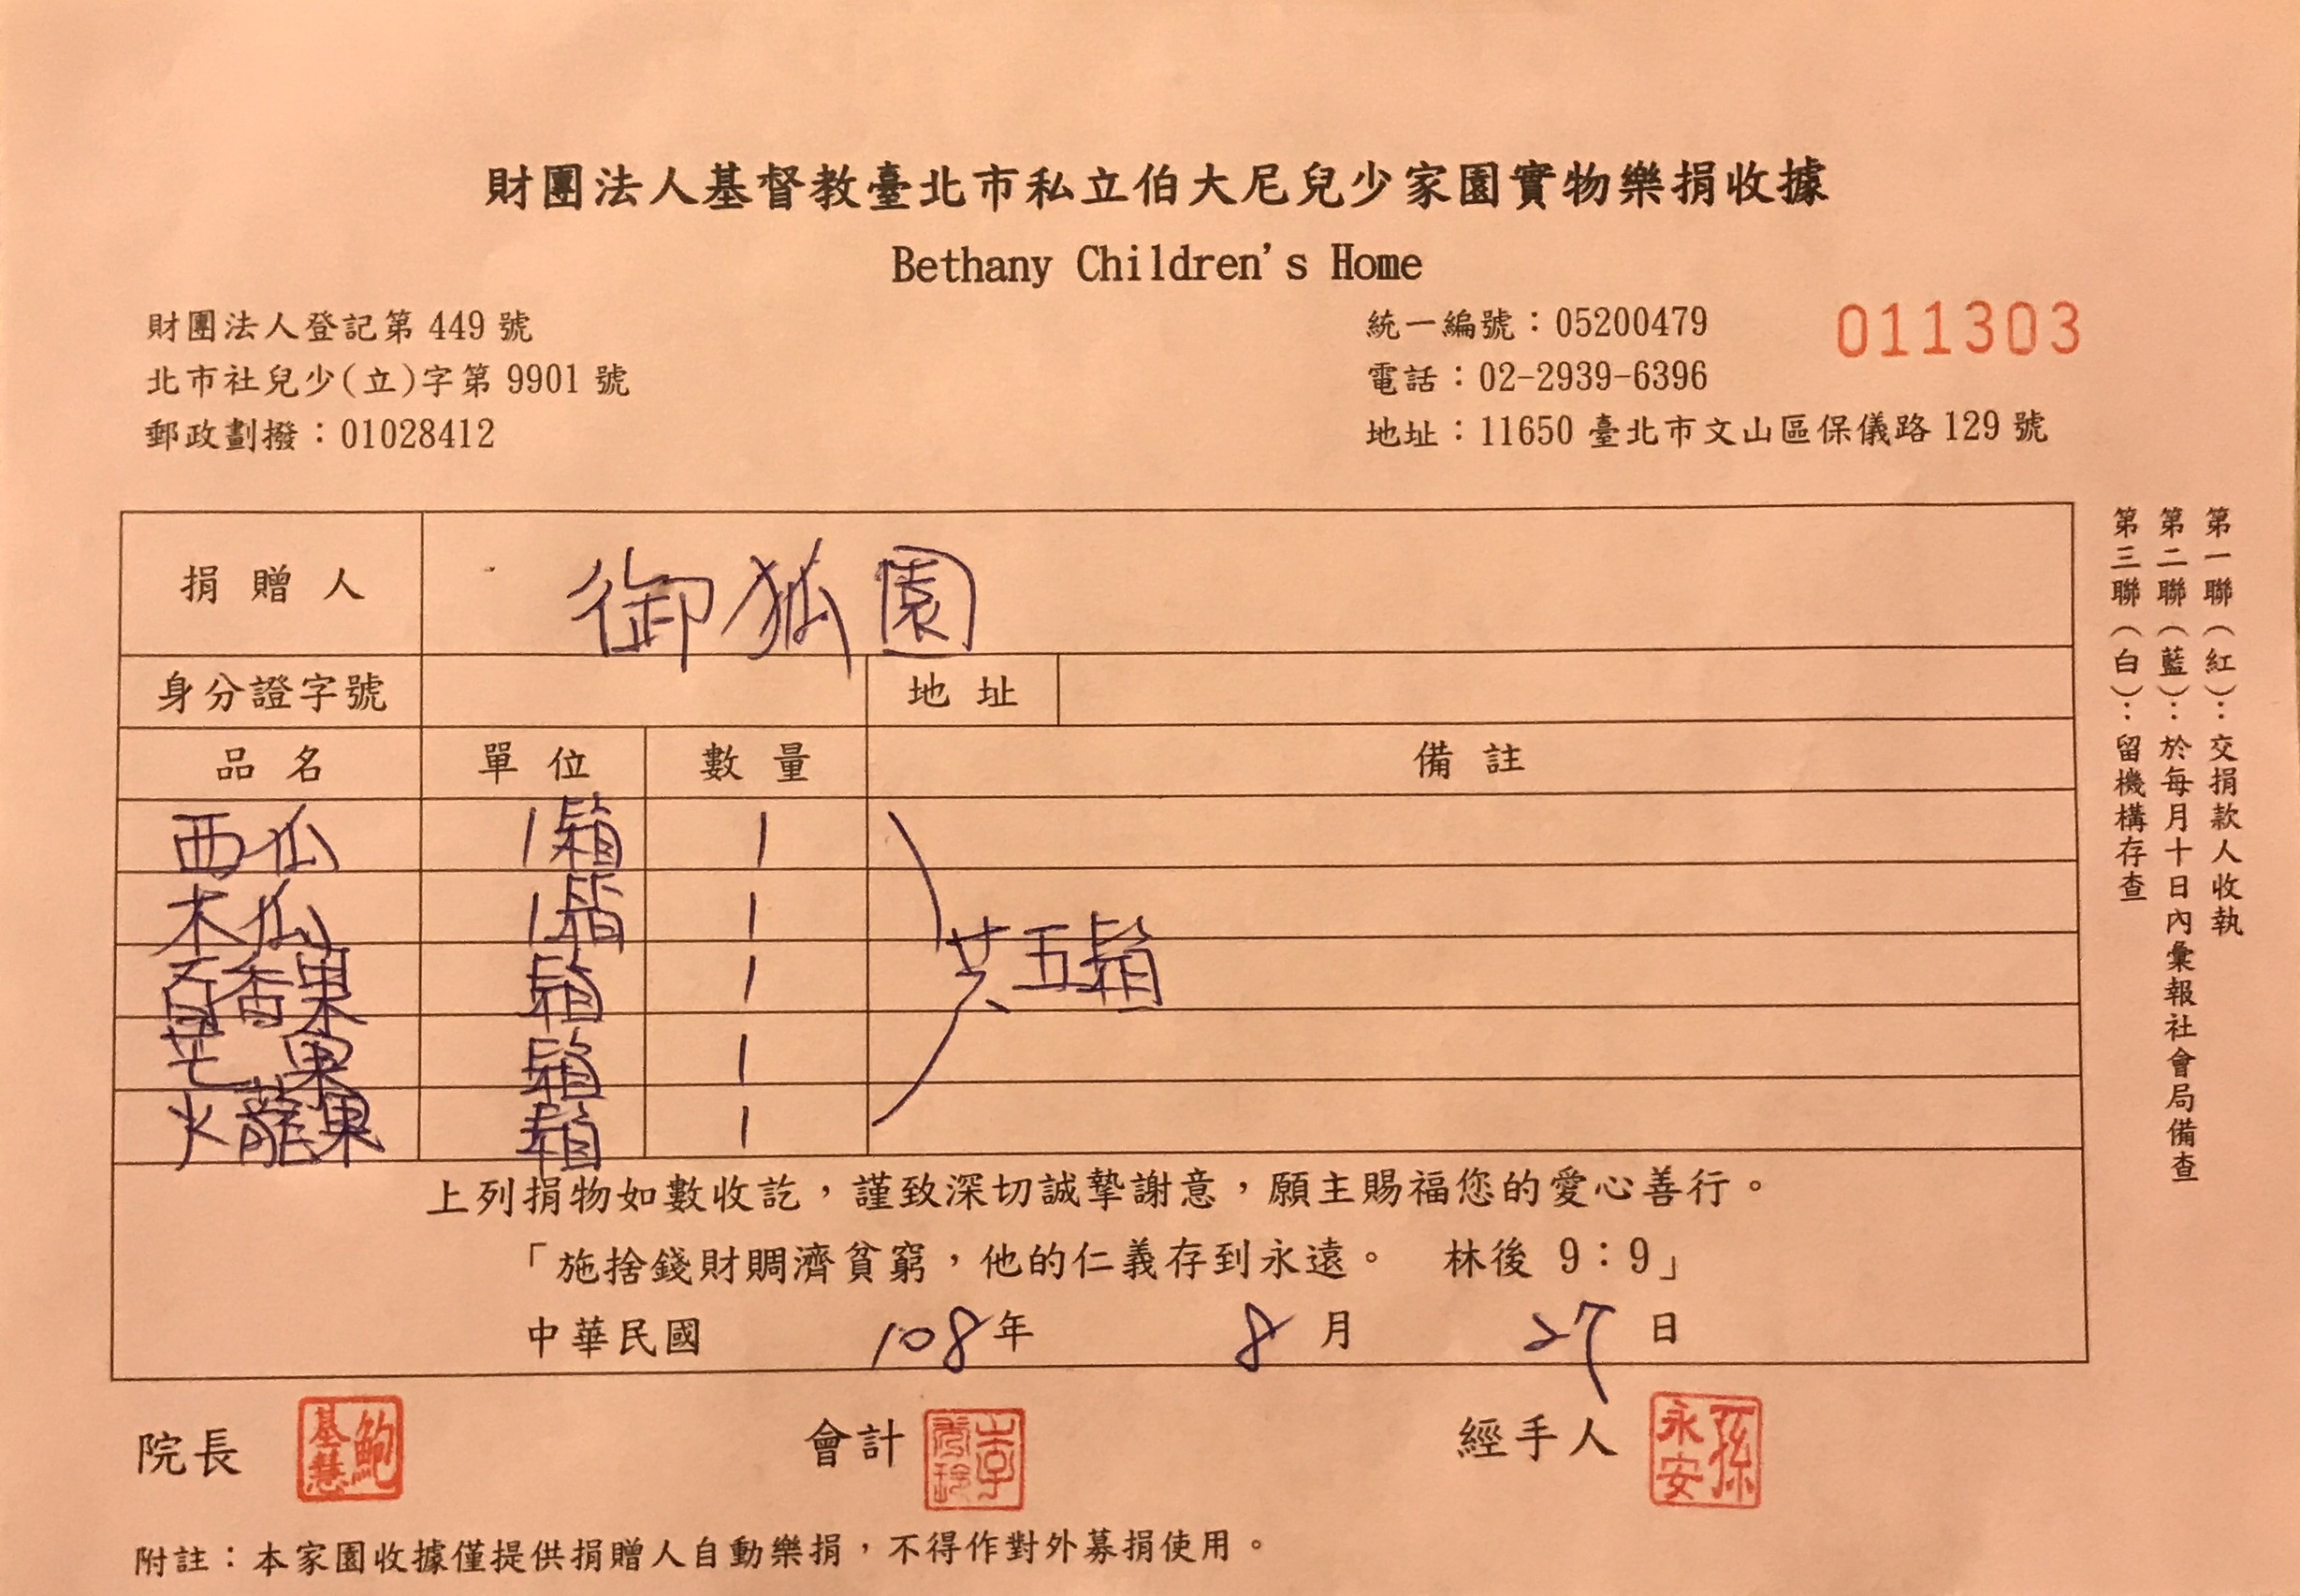 財團法人基督教臺北市私立伯大尼兒少家園實物樂捐收據
Bethany Children's Home
財團法人登記第 449 號
北市社兒少(立)字第 9901 號
郵政劃撥：01028412
統一編號：05200479
011303
電話：02-2939-6396
地址：11650 臺北市文山區保儀路 129 號
捐贈人 御狐園
身分證字號 地址
品名 單位 數量 備註
西瓜 1箱 1
木瓜 1箱 1
百香果 箱 1 共五箱
芒果 箱 1
火龍果 箱 1
上列捐物如數收訖，謹致深切誠摯謝意，願主賜福您的愛心善行。
「施捨錢財賙濟貧窮，他的仁義存到永遠。 林後 9：9」
中華民國 108 年 8 月 27 日
第一聯(紅)：交捐款人收執
第二聯(藍)：於每月十日內彙報社會局備查
第三聯(白)：留機構存查
院長 鮑基慧
會計 李
經手人 孫永安
附註：本家園收據僅提供捐贈人自動樂捐，不得作對外募捐使用。